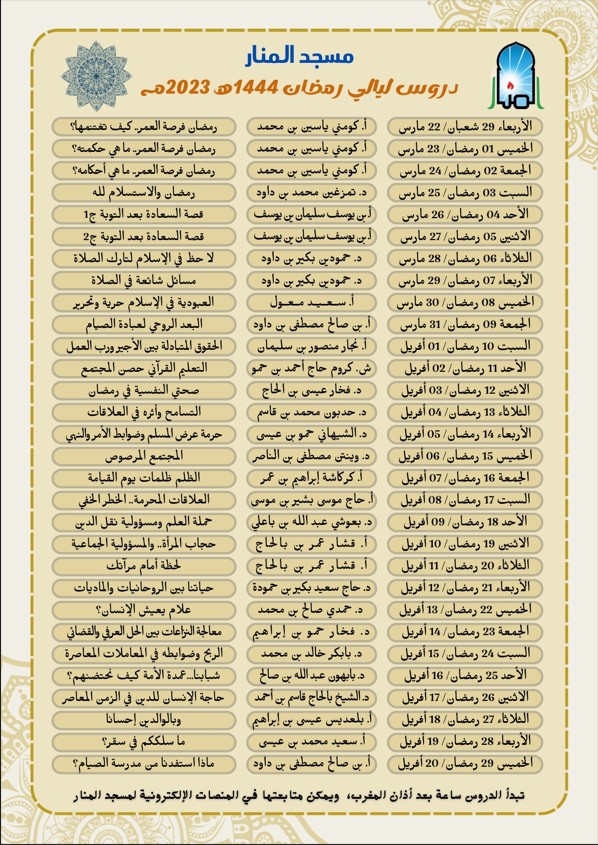 مسجد المنار
دروس ليالي رمضان 1444هـ 2023مـ
المنار
الأربعاء 29 شعبان/ 22 مارس أ. كومني ياسين بن محمد رمضان فرصة العمر.. كيف نغتنمها؟
الخميس 01 رمضان/ 23 مارس أ. كومني ياسين بن محمد رمضان فرصة العمر.. ما هي حكمته؟
الجمعة 02 رمضان/ 24 مارس أ. كومني ياسين بن محمد رمضان فرصة العمر.. ما هي أحكامه؟
السبت 03 رمضان/ 25 مارس د. تمزغين محمد بن داود رمضان والاستسلام لله
الأحد 04 رمضان/ 26 مارس أ. بن يوسف سليمان بن يوسف قصة السعادة بعد التوبة ج1
الاثنين 05 رمضان/ 27 مارس أ. بن يوسف سليمان بن يوسف قصة السعادة بعد التوبة ج2
الثلاثاء 06 رمضان/ 28 مارس د. حمودين بكير بن داود لا حظ في الإسلام لتارك الصلاة
الأربعاء 07 رمضان/ 29 مارس د. حمودين بكير بن داود مسائل شائعة في الصلاة
الخميس 08 رمضان/ 30 مارس أ. سعيد معول العبودية في الإسلام حرية وتحرير
الجمعة 09 رمضان/ 31 مارس أ. بن صالح مصطفى بن داود البعد الروحي لعبادة الصيام
السبت 10 رمضان/ 01 أفريل أ. نجار منصور بن سليمان الحقوق المتبادلة بين الأجير ورب العمل
الأحد 11 رمضان/ 02 أفريل ش. كروم حاج أحمد بن حمو التعليم القرآني حصن المجتمع
الاثنين 12 رمضان/ 03 أفريل د. فخار عيسى بن الحاج صحتي النفسية في رمضان
الثلاثاء 13 رمضان/ 04 أفريل د. حدبون محمد بن قاسم التسامح وأثره في العلاقات
الأربعاء 14 رمضان/ 05 أفريل د. الشيهاني حمو بن عيسى حرمة عرض المسلم وضوابط الأمر والنهي
الخميس 15 رمضان/ 06 أفريل د. وينتن مصطفى بن الناصر المجتمع المرصوص
الجمعة 16 رمضان/ 07 أفريل أ. كركاشة إبراهيم بن عمر الظلم ظلمات يوم القيامة
السبت 17 رمضان/ 08 أفريل أ. حاج موسى بشير بن موسى العلاقات المحرمة.. الخطر الخفي
الأحد 18 رمضان/ 09 أفريل د. بعوشي عبد الله بن باعلي حملة العلم ومسؤولية نقل الدين
الاثنين 19 رمضان/ 10 أفريل أ. قشار عمر بن بالحاج حجاب المرأة.. والمسؤولية الجماعية
الثلاثاء 20 رمضان/ 11 أفريل أ. قشار عمر بن بالحاج لحظة أمام مرآتك
الأربعاء 21 رمضان/ 12 أفريل د. حاج سعيد بكير بن حمودة حياتنا بين الروحانيات والماديات
الخميس 22 رمضان/ 13 أفريل د. حمدي صالح بن محمد علام يعيش الإنسان؟
الجمعة 23 رمضان/ 14 أفريل د. فخار حمو بن إبراهيم معالجة النزاعات بين الحل العرفي والقضائي
السبت 24 رمضان/ 15 أفريل د. بابكر خالد بن محمد الربح وضوابطه في المعاملات المعاصرة
الأحد 25 رمضان/ 16 أفريل د. بابهون عبد الله بن صالح شبابنا...عمدة الأمة كيف نحتضنهم؟
الاثنين 26 رمضان/ 17 أفريل د. الشيخ بالحاج قاسم بن أحمد حاجة الإنسان للدين في الزمن المعاصر
الثلاثاء 27 رمضان/ 18 أفريل أ. بلعديس عيسى بن إبراهيم وبالوالدين إحسانا
الأربعاء 28 رمضان/ 19 أفريل أ. سعيد محمد بن عيسى ما سلككم في سقر؟
الخميس 29 رمضان/ 20 أفريل أ. بن صالح مصطفى بن داود ماذا استفدنا من مدرسة الصيام؟
تبدأ الدروس ساعة بعد أذان المغرب، ويمكن متابعتها في المنصات الإلكترونية لمسجد المنار